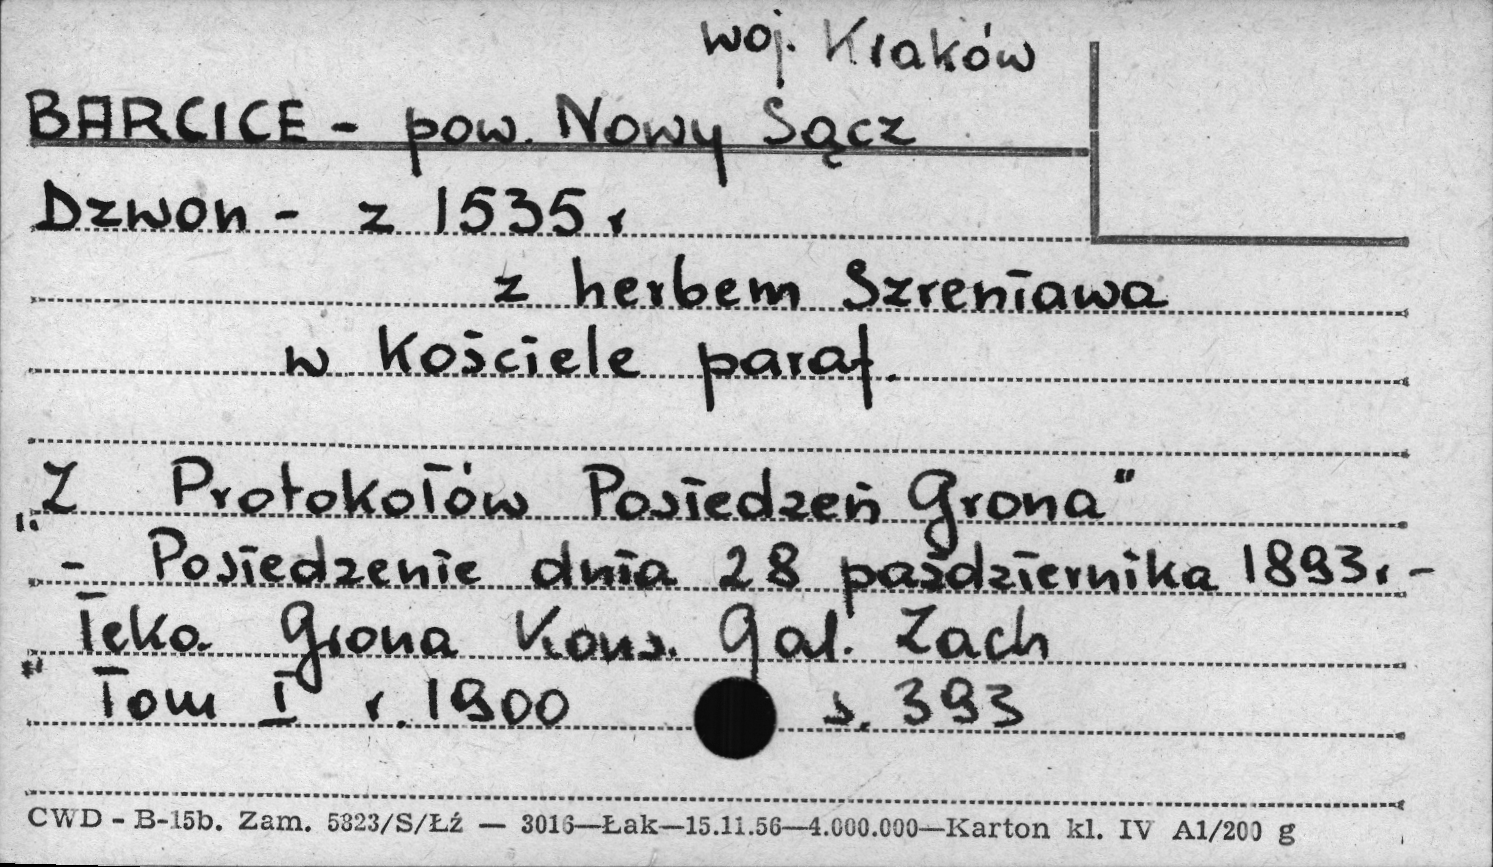 woj. Kraków
BARCICE - pow. Nowy Sącz
Dzwon - z 1535 r
z herbem Szreniawa
w Kościele paraf.
„Z Protokołów Posiedzeń Grona"
- Posiedzenie dnia 28 października 1893r. -
"Teka Grona Kons. Gal. Zach
Tom I r. 1900 s. 393
CWD - B-15b. Zam. 5823/S/Łź — 3016—Łak—15.11.56—4.000.000—Karton kl. IV A1/200 g